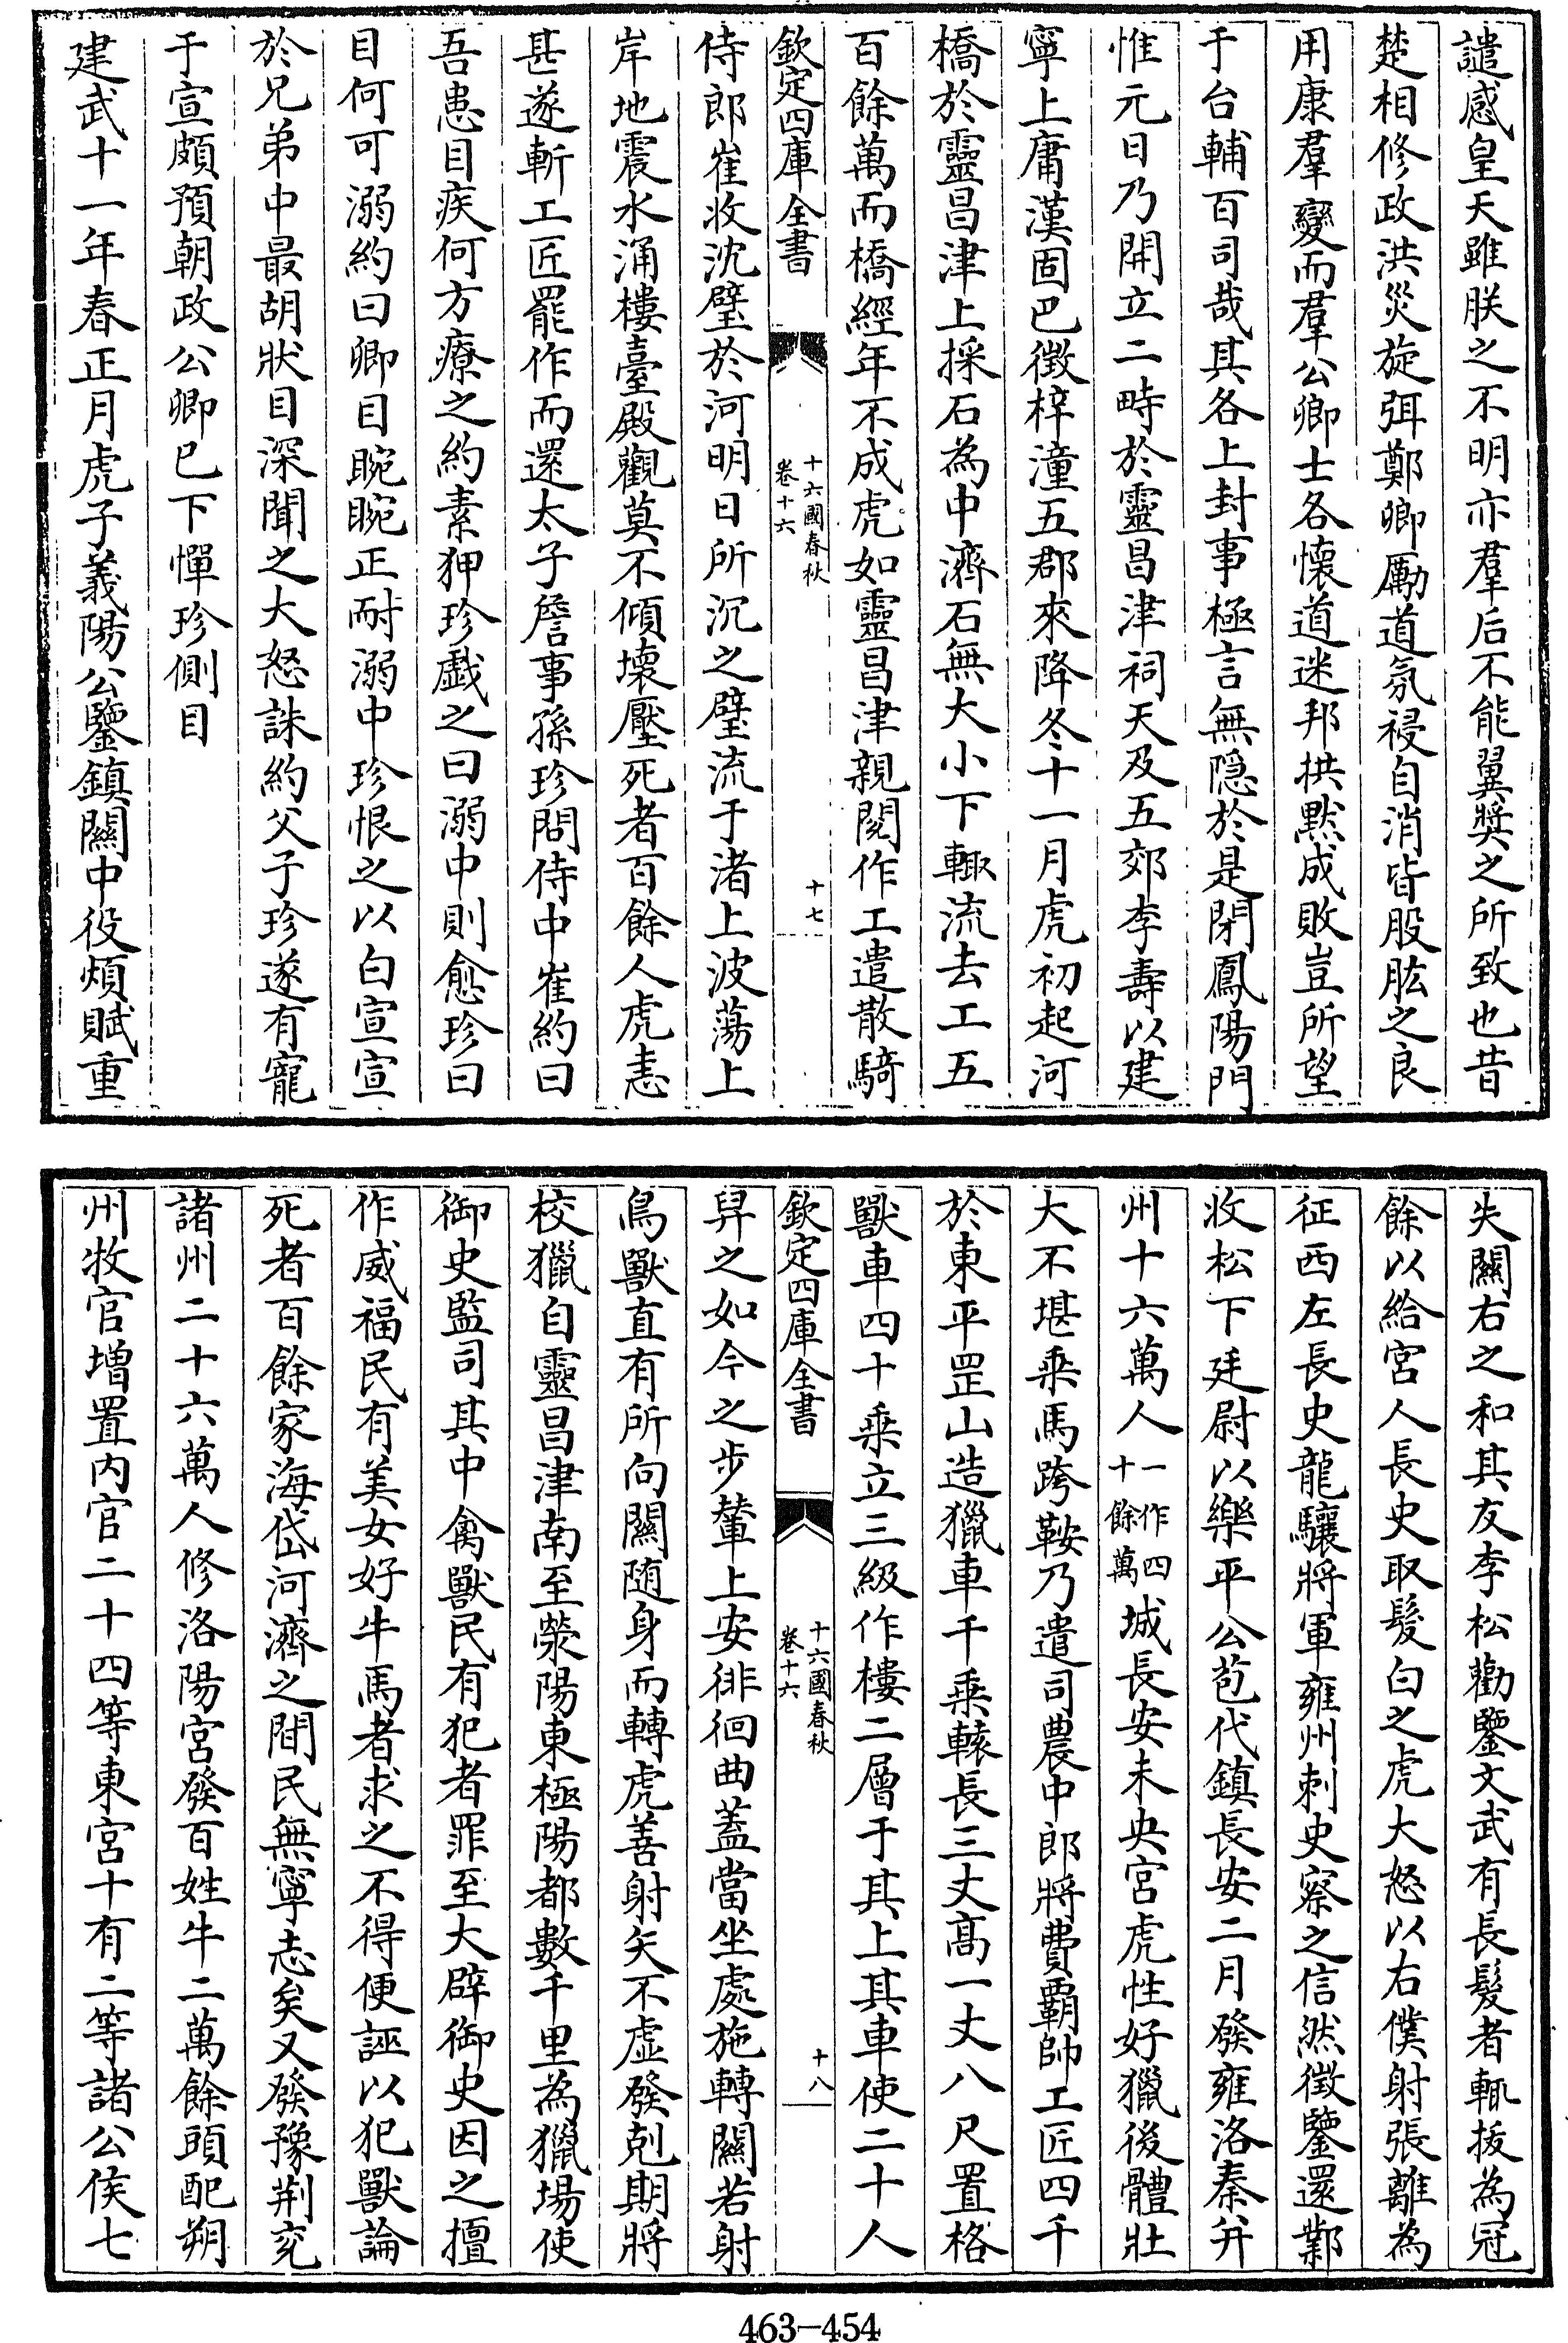 譴感皇天雖朕之不明亦羣后不能翼奬之所致也昔
楚相修政洪災旋弭鄭卿勵道氛祲自消皆股肱之良
用康羣變而羣公卿士各懷道迷邦拱黙成敗豈所望
于台輔百司哉其各上封事極言無隠於是閉鳳陽門
惟元日乃開立二畤於靈昌津祠天及五郊李壽以建
寧上庸漢固巴徴梓潼五郡來降冬十一月虎初起河
橋於靈昌津上採石為中濟石無大小下輙流去工五
百餘萬而橋經年不成虎如靈昌津親閱作工遣散騎
欽定四庫全書
十六國春秋
卷十六
十七
侍郎崔收沈璧於河明日所沉之璧流于渚上波蕩上
岸地震水涌樓臺殿觀莫不傾壞壓死者百餘人虎恚
甚遂斬工匠罷作而還太子詹事孫珍問侍中崔約曰
吾患目疾何方療之約素狎珍戯之曰溺中則愈珍曰
目何可溺約曰卿目睕睕正耐溺中珍恨之以白宣宣
於兄弟中最胡狀目深聞之大怒誅約父子珍遂有寵
于宣頗預朝政公卿已下憚珍側目
建武十一年春正月虎子義陽公鑒鎮關中役煩賦重
失關右之和其友李松勸鑒文武有長髮者輒拔為冠
餘以給宮人長史取髮白之虎大怒以右僕射張離為
征西左長史龍驤將軍雍州刺史察之信然徴鑒還鄴
收松下廷尉以樂平公苞代鎮長安二月發雍洛秦并
州十六萬人一作四十餘萬城長安未央宮虎性好獵後體壯
大不堪乘馬跨鞍乃遣司農中郎將費霸帥工匠四千
於東平罡山造獵車千乘轅長三丈高一丈八尺置格
獸車四十乘立三級作樓二層于其上其車使二十人
欽定四庫全書
十六國春秋
卷十六
十八
舁之如今之步輦上安徘徊曲蓋當坐處施轉關若射
鳥獸直有所向關随身而轉虎善射矢不虛發剋期將
校獵自靈昌津南至滎陽東極陽都數千里為獵場使
御史監司其中禽獸民有犯者罪至大辟御史因之擅
作威福民有美女好牛馬者求之不得便誣以犯獸論
死者百餘家海岱河濟之間民無寧志矣又發豫荆兖
諸州二十六萬人修洛陽宮發百姓牛二萬餘頭配朔
州牧官増置内官二十四等東宮十有二等諸公侯七
463-454